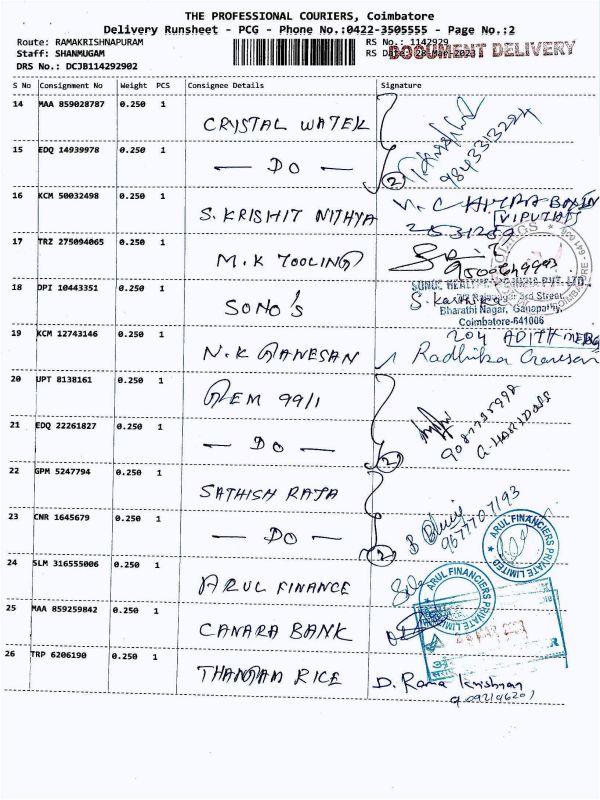 THE PROFESSIONAL COURIERS, Coimbatore
Delivery Runsheet - PCG - Phone No.:0422-3505555 - Page No.:2
Route: RAMAKRISHNAPURAM
RS No.: 1142929
Staff: SHANMUGAM
RS Date: 28-Mar-2023
DOCUMENT DELIVERY
DRS No.: DCJB114292902
S No Consignment No Weight PCS Consignee Details Signature
14 MAA 859028787 0.250 1 CRYSTAL WATER
15 EDQ 14939978 0.250 1 — DO — 2
16 KCM 50032498 0.250 1 S. KRISHIT NITHYA
17 TRZ 275094065 0.250 1 M.K TOOLING
18 DPI 10443351 0.250 1 SONO'S
Bharathi Nagar, Ganapathy,
Coimbatore-641006
19 KCM 12743146 0.250 1 N.K GANESAN Radhika Ganesan
20 UPT 8138161 0.250 1 GEM 99/1
21 EDQ 22261827 0.250 1 — DO — 2
22 GPM 5247794 0.250 1 SATHISH RAJA
23 CNR 1645679 0.250 1 — DO — 2
9677707193
ARUL FINANCIERS PRIVATE LIMITED
24 SLM 316555006 0.250 1 ARUL FINANCE
ARUL FINANCIERS PRIVATE LIMITED
25 MAA 859259842 0.250 1 CANARA BANK
26 TRP 6206190 0.250 1 THANGAM RICE D. Rama Krishnan